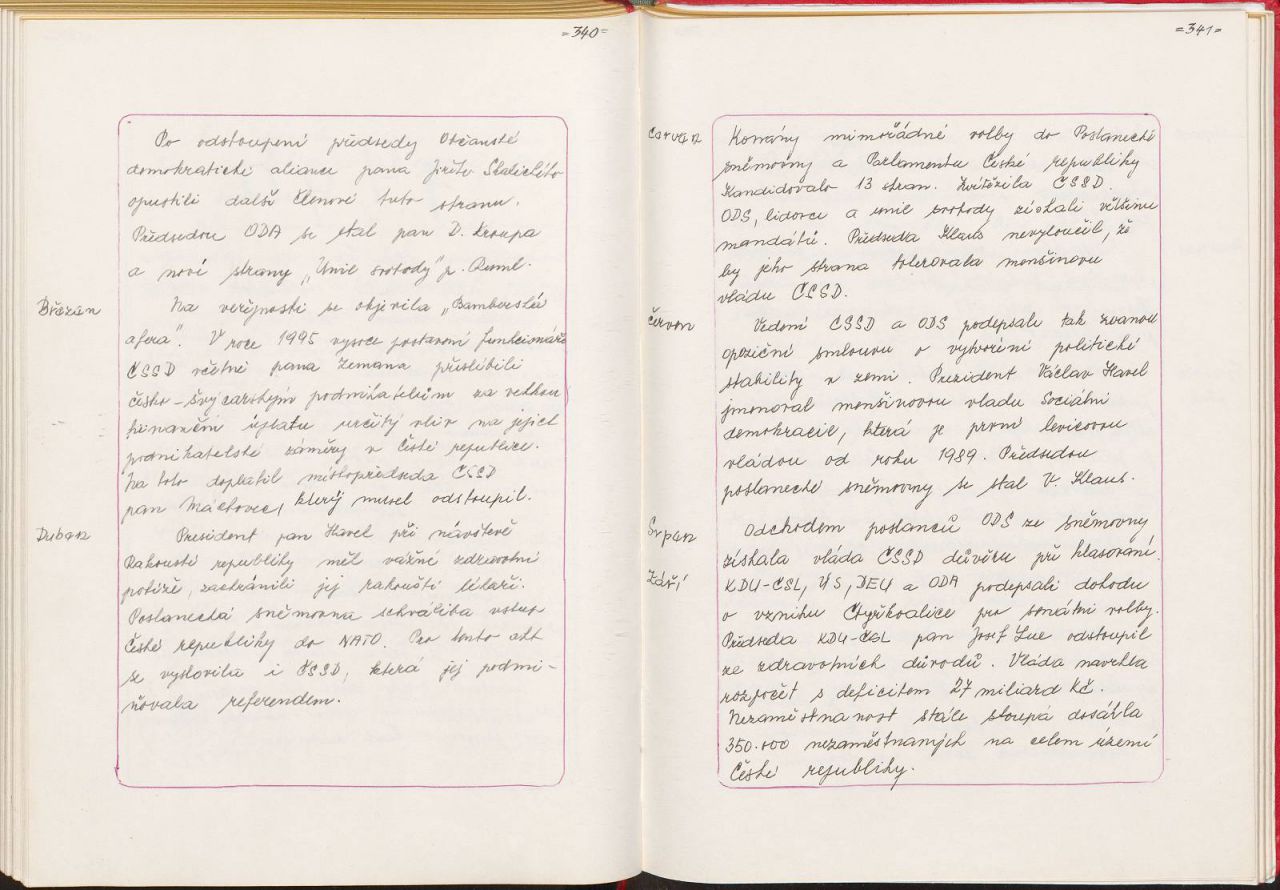 =340=
Po odstoupení předsedy Občanské
demokratické aliance pana Jiřího Skalického
opustili další členové tuto stranu.
Předsedou ODA se stal pan D. Kroupa
a nové strany „Unie svobody" p. Ruml.
Březen
Na veřejnosti se objevila „Bamberská
aféra". V roce 1995 vysoce postavení funkcionáři
ČSSD včetně pana Zemana přislíbili
česko-švýcarským podnikatelům za velkou
finanční úplatu určitý vliv na jejich
podnikatelské záměry v České republice.
Na toto doplatil místopředseda ČSSD
pan Máchovec, který musel odstoupil.
Duben
President pan Havel při návštěvě
Rakouské republiky měl vážné zdravotní
potíže, zachránili jej rakouští lékaři.
Poslanecká sněmovna schválila vstup
České republiky do NATO. Pro tento akt
se vyslovila i ČSSD, která jej podmi-
ňovala referendem.
=341=
Červen
Konány mimořádné volby do Poslanecké
sněmovny a Parlamentu České republiky
Kandidovalo 13 stran. Zvítězila ČSSD.
ODS, lidovci a unie svobody získali většinu
mandátů. Předseda Klaus nevyloučil, že
by jeho strana tolerovala menšinovou
vládu ČSSD.
Červen
Vedení ČSSD a ODS podepsali tak zvanou
opoziční smlouvu o vytvoření politické
stability v zemi. Prezident Václav Havel
jmenoval menšinovou vládu Sociální
demokracie, která je první levicovou
vládou od roku 1989. Předsedou
poslanecké sněmovny se stal V. Klaus.
Srpen
Odchodem poslanců ODS ze sněmovny
získala vláda ČSSD důvěru při hlasování.
Září
KDU-ČSL, US, DEU a ODA podepsali dohodu
o vzniku Čtyřkoalice pro senátní volby.
Předseda KDU-ČSL pan Josef Lux odstoupil
ze zdravotních důvodů. Vláda navrhla
rozpočet s deficitem 27 miliard Kč.
Nezaměstnanost stále stoupá dosáhla
350.000 nezaměstnaných na celém území
České republiky.